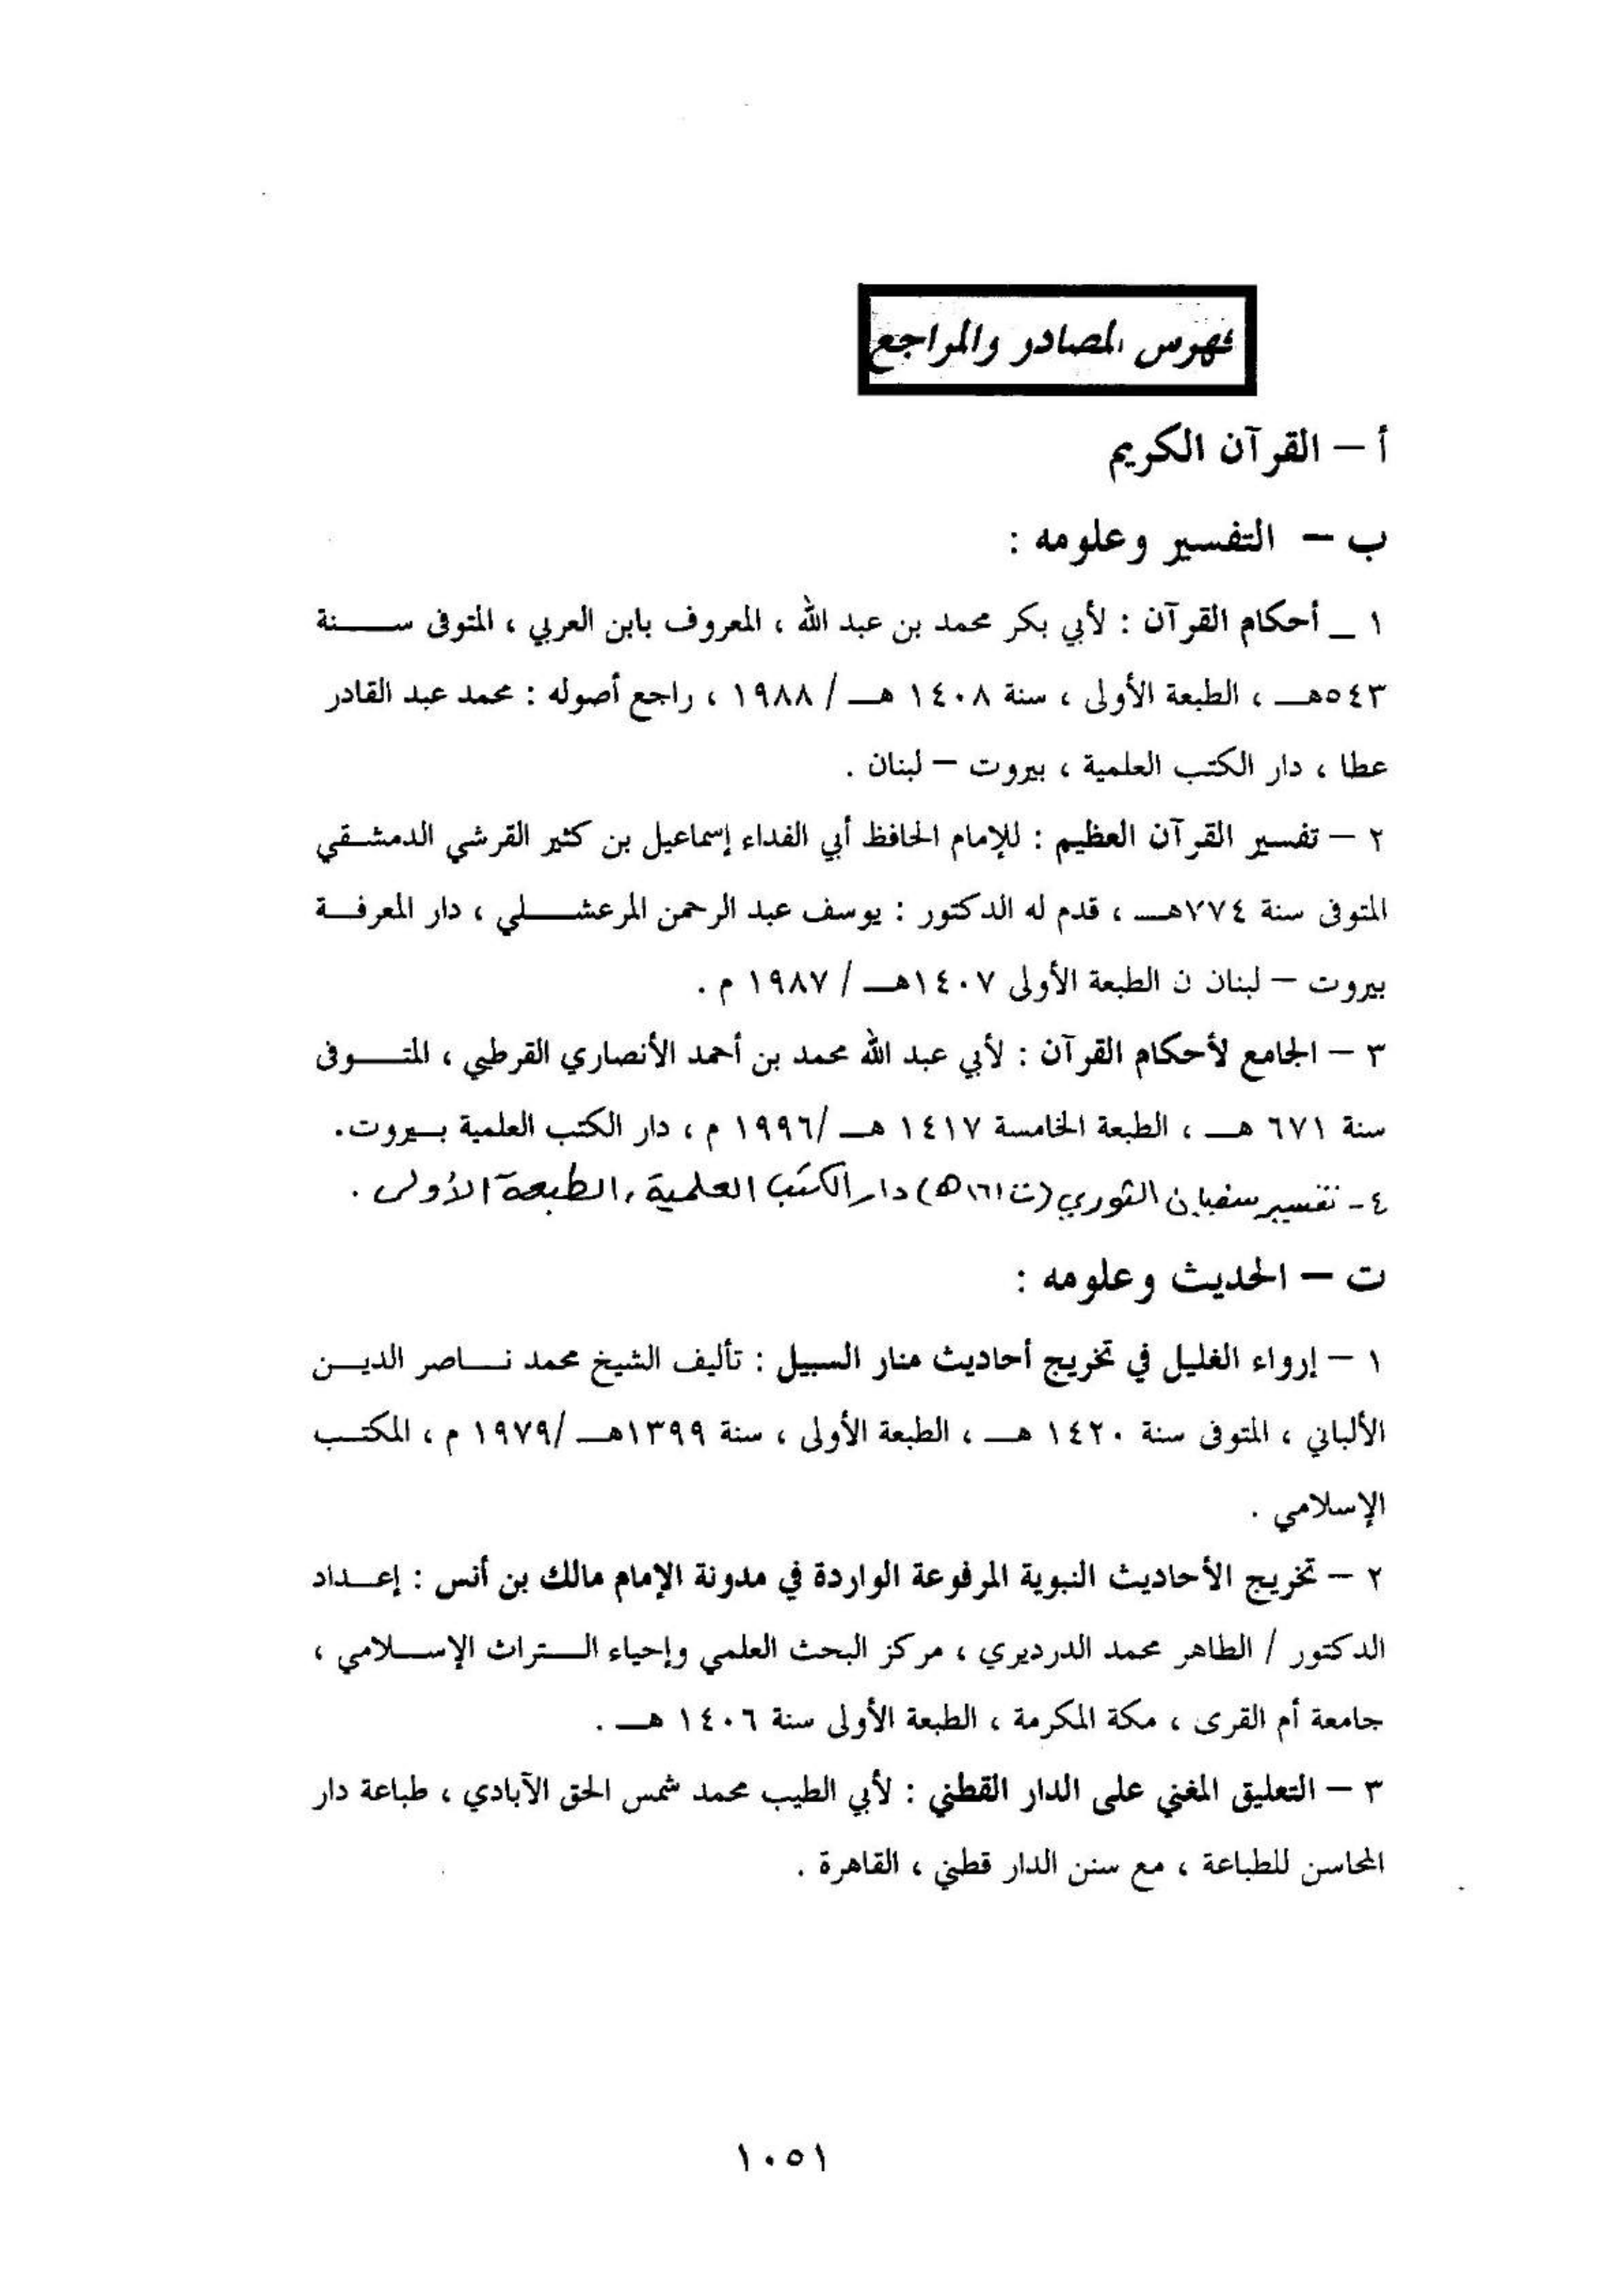 فهرس المصادر والمراجع
أ – القرآن الكريم
ب – التفسير وعلومه :
١ _ أحكام القرآن : لأبي بكر محمد بن عبد الله ، المعروف بابن العربي ، المتوفى سنة
٥٤٣هـ ، الطبعة الأولى ، سنة ١٤٠٨ هـ / ١٩٨٨ ، راجع أصوله : محمد عبد القادر
عطا ، دار الكتب العلمية ، بيروت – لبنان .
٢ – تفسير القرآن العظيم : للإمام الحافظ أبي الفداء إسماعيل بن كثير القرشي الدمشقي
المتوفى سنة ٧٧٤هـ ، قدم له الدكتور : يوسف عبد الرحمن المرعشلي ، دار المعرفة
بيروت – لبنان ن الطبعة الأولى ١٤٠٧هـ / ١٩٨٧ م .
٣ – الجامع لأحكام القرآن : لأبي عبد الله محمد بن أحمد الأنصاري القرطبي ، المتوفى
سنة ٦٧١ هـ ، الطبعة الخامسة ١٤١٧ هـ /١٩٩٦ م ، دار الكتب العلمية بيروت.
٤- تفسير سفيان الثوري (ت ١٦١هـ) دار الكتب العلمية ، الطبعة الأولى .
ت – الحديث وعلومه :
١ – إرواء الغليل في تخريج أحاديث منار السبيل : تأليف الشيخ محمد ناصر الدين
الألباني ، المتوفى سنة ١٤٢٠ هـ ، الطبعة الأولى ، سنة ١٣٩٩هـ /١٩٧٩ م ، المكتب
الإسلامي .
٢ – تخريج الأحاديث النبوية المرفوعة الواردة في مدونة الإمام مالك بن أنس : إعداد
الدكتور / الطاهر محمد الدرديري ، مركز البحث العلمي وإحياء التراث الإسلامي ،
جامعة أم القرى ، مكة المكرمة ، الطبعة الأولى سنة ١٤٠٦ هـ .
٣ – التعليق المغني على الدار القطني : لأبي الطيب محمد شمس الحق الآبادي ، طباعة دار
المحاسن للطباعة ، مع سنن الدار قطني ، القاهرة .
١٠٥١